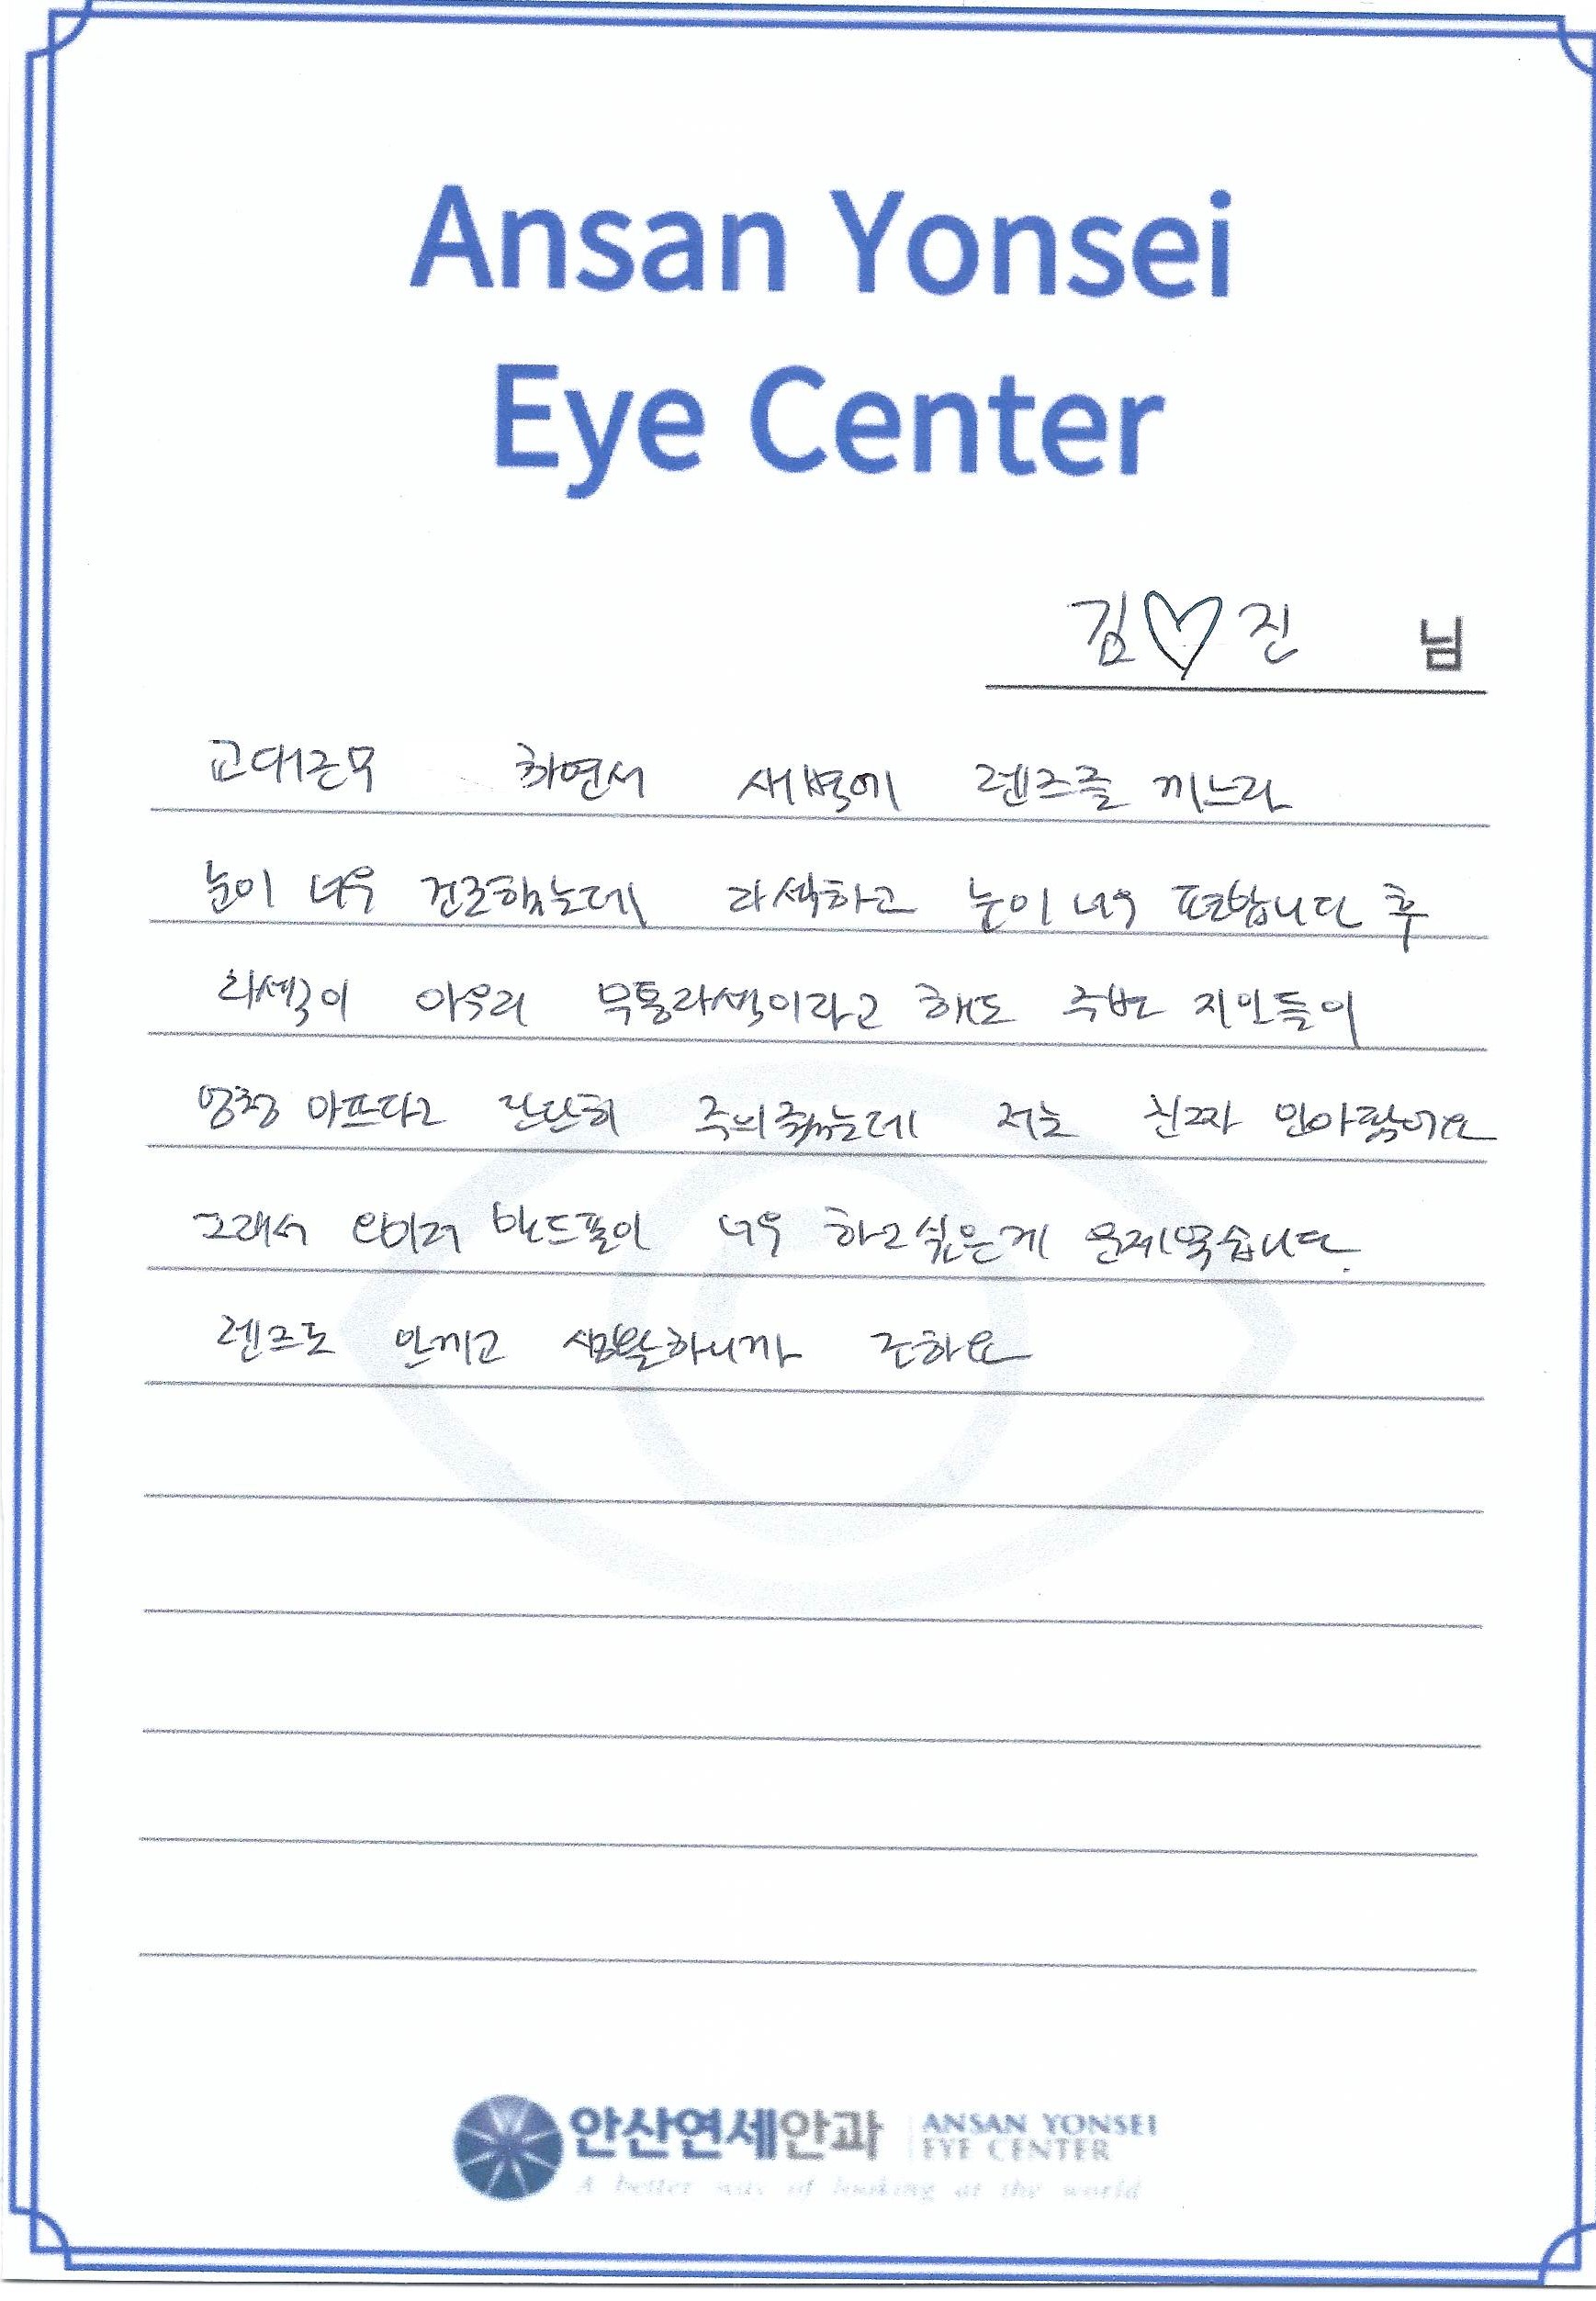 Ansan Yonsei
Eye Center
김♡진 님
교대근무 하면서 새벽에 렌즈를 끼느라
눈이 너무 건조했는데 라섹하고 눈이 너무 편합니다 후
라섹이 아무리 무통라섹이라고 해도 주변 지인들이
엄청 아프다고 단단히 주의줬는데 저는 진짜 안아팠어요
그래서 핸드폰이 너무 하고싶은게 문제였습니다.
렌즈도 안끼고 생활하니까 조하요
안산연세안과 ANSAN YONSEI
EYE CENTER
A better way of looking at the world